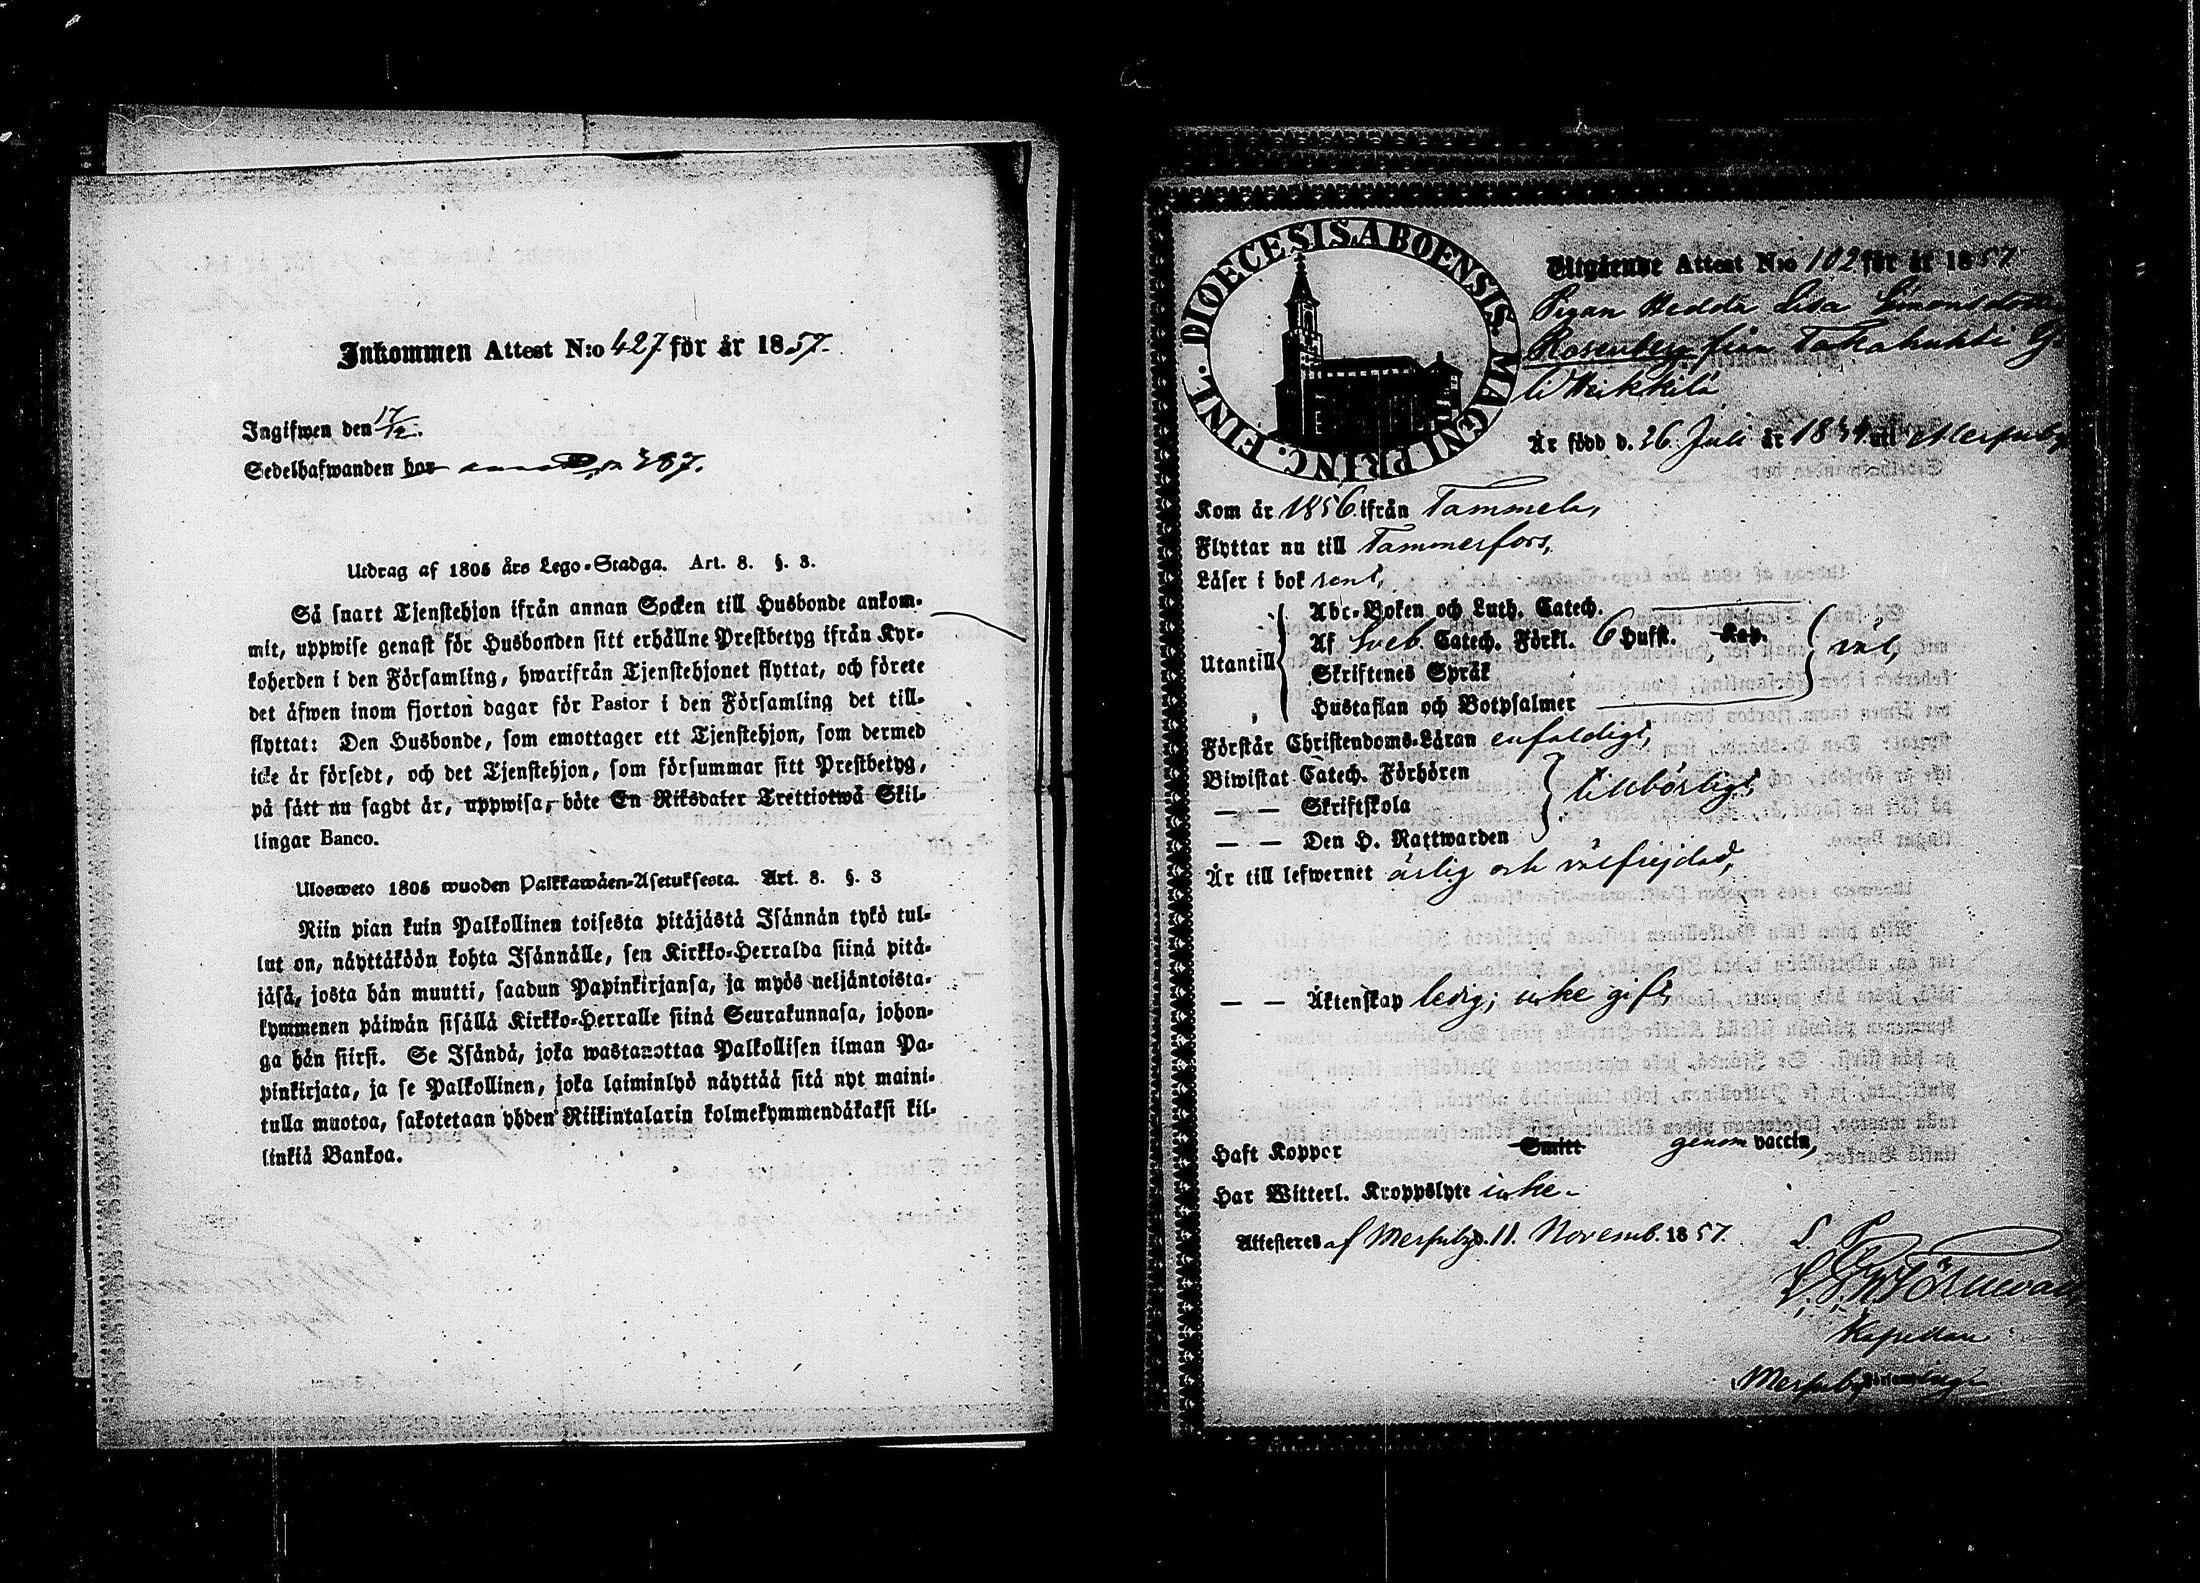 Inkommen Attest N:o 427 för år 1857.
Ingifwen den 17/12.
Sedelhafwanden bor p 387.
Utdrag af 1805 års Lego-Stadga. Art. 8. §. 3.
Så snart Tjenstehjon ifrån annan Socken till Husbonde ankom-
mit, uppwise genast för Husbonden sitt erhållne Prestbetyg ifrån Kyr-
koherden i den Församling, hwarifrån Tjenstehjonet flyttat, och förete
det äfwen inom fjorton dagar för Pastor i den Församling det till-
flyttat: Den Husbonde, som emottager ett Tjenstehjon, som dermed
icke är försedt, och det Tjenstehjon, som försummar sitt Prestbetyg,
på sätt nu sagdt är, uppwisa, böte En Riksdaler Trettiotwå Skil-
lingar Banco.
Ulosweto 1805 wuoden Palkkawäen-Asetuksesta. Art. 8. §. 3
Niin pian kuin Palkollinen toisesta pitäjästä Isännän tykö tul-
lut on, näyttäköön kohta Isännälle, sen Kirkko-Herralda siinä pitä-
jäsä, josta hän muutti, saadun Papinkirjansa, ja myös neljäntoista-
kymmenen päiwän sisällä Kirkko-Herralle siinä Seurakunnasa, johon-
ga hän siirsi. Se Isändä, joka wastaanottaa Palkollisen ilman Pa-
pinkirjata, ja se Palkollinen, joka laiminlyö näyttää sitä nyt maini-
tulla muotoa, sakotetaan yhden Riikintalarin kolmekymmendäkaksi kil-
linkiä Bankoa.
DIOECESIS ABOENSIS. MAGNI PRINC. FINL.
Utgående Attest N:o 102 för år 1857
Pigan Hedda Lisa Simonsdotter
Rosenberg från Takahuhti
Heikkilä
Är född d. 26 Juli år 1834 uti Messuby
Kom år 1856 ifrån Tammela,
Flyttar nu till Tammerfors,
Läser i bok rent,
Utantill
Abc-Boken och Luth. Catech.
Af Sveb. Catech. Förkl. 6 Hufst. Kap.
Skriftenes Språk
Hustaflan och Botpsalmer
väl,
Förstår Christendoms-Läran enfaldigt,
Biwistat Catech. Förhören
— — Skriftskola
— — Den H. Nattwarden
tillbörligt,
Är till lefwernet ärlig och välfrejdad,
— — Äktenskap ledig; icke gift,
Haft Koppor Smitt genom vaccin,
Har Witterl. Kroppslyte icke.
Attesteres af Messuby d. 11. Novemb. 1857.
Kapellan
Messuby Församling